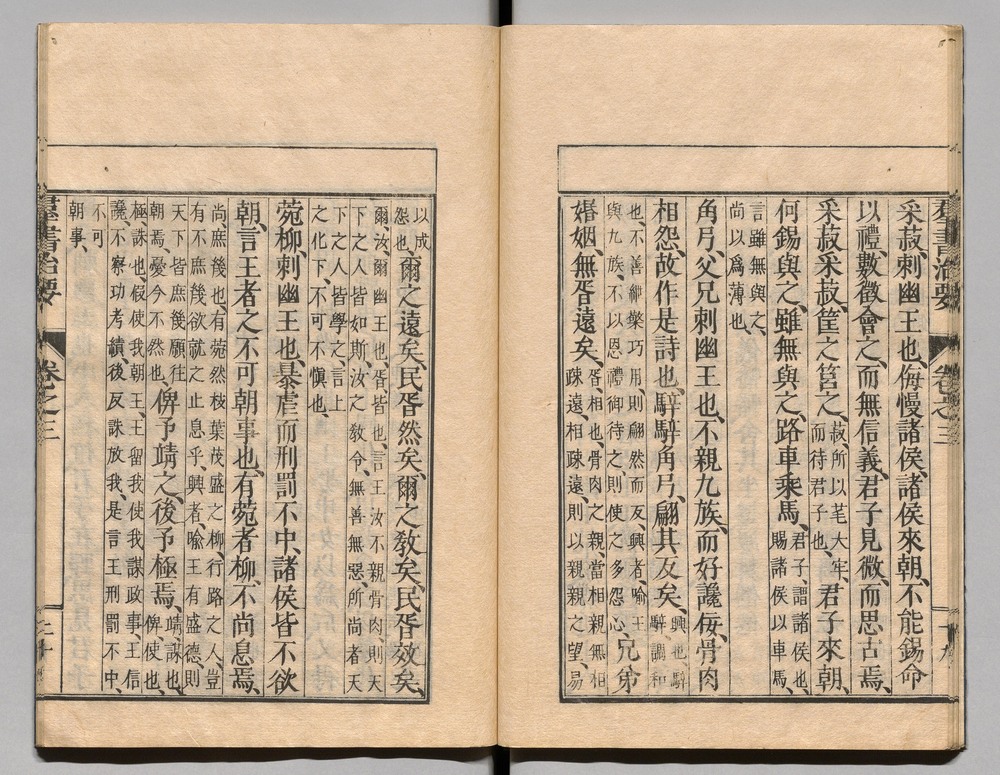 采菽、刺幽王也、侮慢諸侯、諸侯來朝、不能錫命
以禮、數徵會之、而無信義、君子見微、而思古焉、
采菽采菽、筐之筥之、菽所以芼大牢、而待君子也、君子來朝、
何錫與之、雖無與之、路車乘馬、君子、謂諸侯也、賜諸侯以車馬、
言雖無與之、尚以爲薄也、
角弓、父兄刺幽王也、不親九族、而好讒佞、骨肉
相怨、故作是詩也、騂騂角弓、翩其反矣、興也、騂騂、調和
也、不善紲檠巧用、則翩然而反、興者、喻王與九族、不以恩禮御待之、則使之多怨心、兄弟
婚姻、無胥遠矣、胥、相也、骨肉之親、當相親無相疎遠、相疎遠、則以親親之望、易
以成怨也、爾之遠矣、民胥然矣、爾之敎矣、民胥效矣、
爾、汝、爾幽王也、胥皆也、言王汝不親骨肉、則天下之人皆如斯、汝之敎令、無善無惡、所尚者、天
下之人皆學之、言上之化下、不可不愼也、
菀柳、刺幽王也、暴虐而刑罰不中、諸侯皆不欲
朝、言王者之不可朝事也、有菀者柳、不尚息焉、
尚、庶幾也、有菀然枝葉茂盛之柳、行路之人、豈有不庶幾欲就之止息乎、興者、喻王有盛德、則
天下皆庶幾願往朝焉、憂今不然也、俾予靖之、後予極焉、靖、謀也、俾、使也、
極、誅也、假使我朝王、王留我使我謀政事、王信讒、不察功考績、後反誅放我、是言王刑罰不中、
不可朝事、
羣書治要 卷之三 十九
羣書治要 卷之三 二十